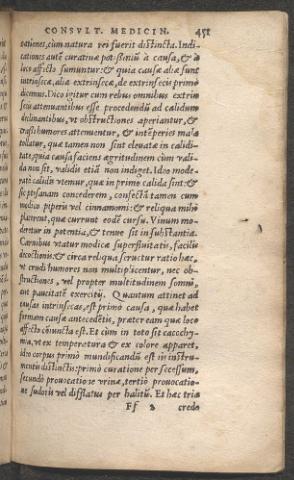 CONSVLT. MEDICIN. 451
tationes, cum natura rei fuerit distincta. Indi-
cationes autẽ curatiuæ potissimũ à causa, & à
loco affecto sumuntur: & quia causæ aliæ sunt
intrinsecæ, aliæ extrinsecæ, de extrinsecis primò
dicimus. Dico igitur cum rebus omnibus extrin
secis attenuantibus esse procedendũ ad calidum
declinantibus, vt obstructiones aperiantur, &
crassi humores attenuentur, & intẽperies mala
tollatur, quæ tamen non sint eleuatæ in calidi-
tate, quia causa faciens ægritudinem cum vali-
da non sit, validis etiã non indiget. Ideo mode-
ratè calidis vtemur, quæ in primo calida sint: &
sic
placuerit, quæ currunt eodẽ cursu. Vinum mo-
deretur in potentia, & tenue sit in substantia.
Carnibus vtatur modicæ superfluitatis, facilis
decoctionis: & circa reliqua seruetur ratio hæc,
vt crudi humores non multiplicentur, nec ob-
structiones, vel propter multitudinem somni,
aut paucitatẽ exercitij. Quantum attinet ad
causas intrinsecas, est primò causa, quæ habet
firmam causæ antecedẽtis, præter eam quæ loco
affecto cõiuncta est. Et cùm in toto sit cacochy-
mia, vt ex temperatura & ex colore apparet,
ideo corpus primò mundificandũ est in instru-
mentis distinctis: primò curatione per secessum,
secundò prouocatione vrinæ, tertiò prouocatio-
ne sudoris vel difflatus per halitũ. Et hæc tria
Ff 2 credo